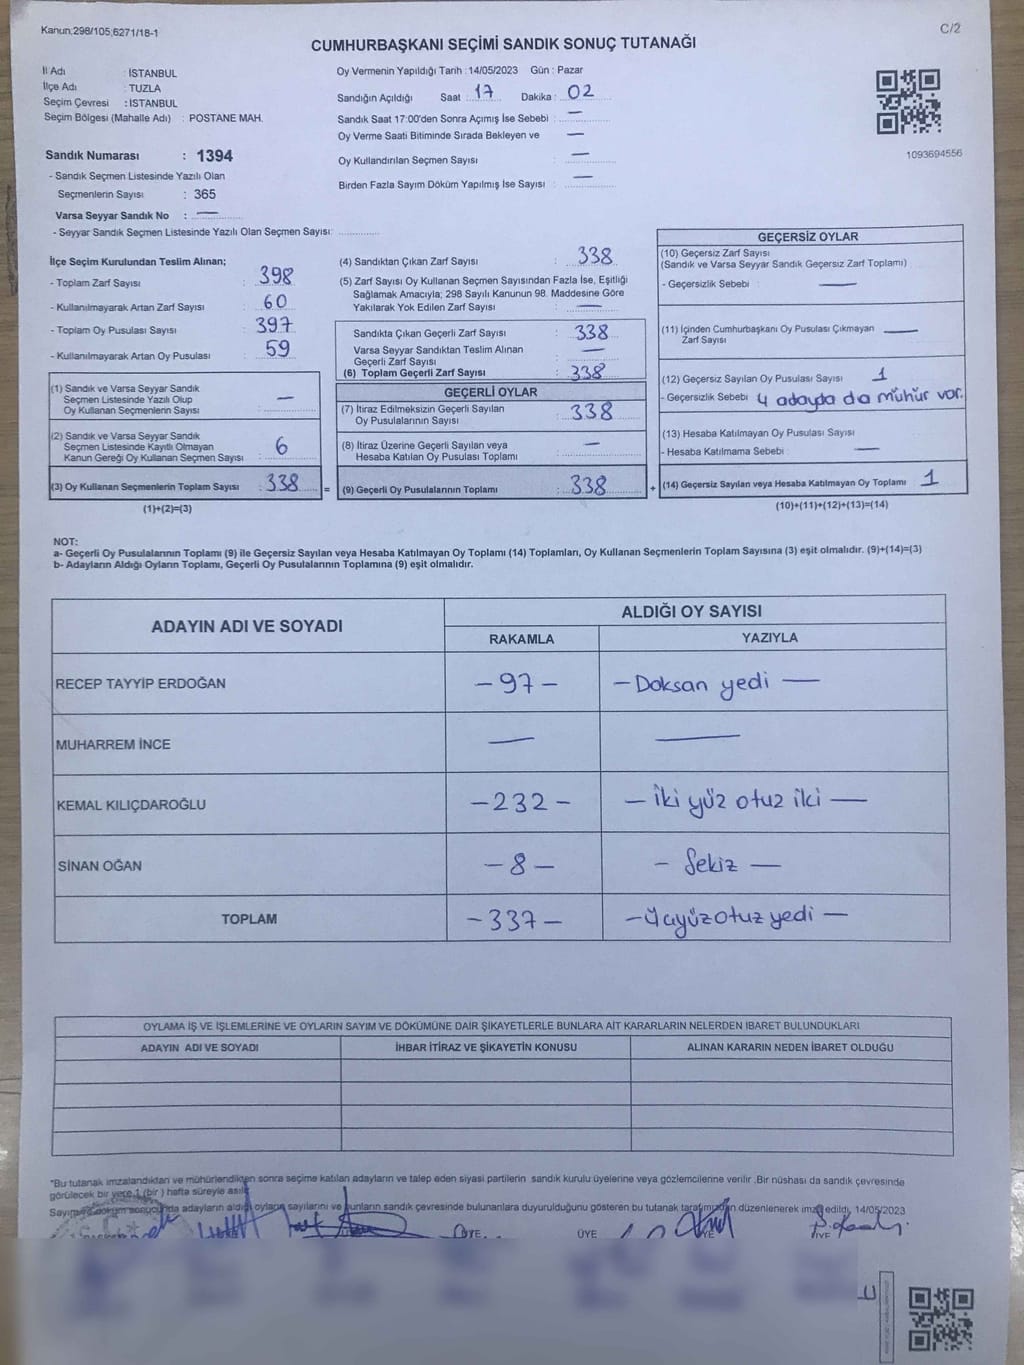 Kanun;298/105;6271/18-1
C/2
CUMHURBAŞKANI SEÇİMİ SANDIK SONUÇ TUTANAĞI
İl Adı : İSTANBUL
İlçe Adı : TUZLA
Seçim Çevresi : İSTANBUL
Seçim Bölgesi (Mahalle Adı) : POSTANE MAH.
Sandık Numarası : 1394
- Sandık Seçmen Listesinde Yazılı Olan
Seçmenlerin Sayısı : 365
Varsa Seyyar Sandık No : —
- Seyyar Sandık Seçmen Listesinde Yazılı Olan Seçmen Sayısı:
Oy Vermenin Yapıldığı Tarih : 14/05/2023 Gün : Pazar
Sandığın Açıldığı Saat : 17 Dakika : 02
Sandık Saat 17:00'den Sonra Açımış İse Sebebi : —
Oy Verme Saati Bitiminde Sırada Bekleyen ve —
Oy Kullandırılan Seçmen Sayısı : —
Birden Fazla Sayım Döküm Yapılmış İse Sayısı : —
1093694556
İlçe Seçim Kurulundan Teslim Alınan;
- Toplam Zarf Sayısı : 398
- Kullanılmayarak Artan Zarf Sayısı : 60
- Toplam Oy Pusulası Sayısı : 397
- Kullanılmayarak Artan Oy Pusulası : 59
(1) Sandık ve Varsa Seyyar Sandık
Seçmen Listesinde Yazılı Olup
Oy Kullanan Seçmenlerin Sayısı : —
(2) Sandık ve Varsa Seyyar Sandık
Seçmen Listesinde Kayıtlı Olmayan
Kanun Gereği Oy Kullanan Seçmen Sayısı : 6
(3) Oy Kullanan Seçmenlerin Toplam Sayısı : 338 =
(1)+(2)=(3)
(4) Sandıktan Çıkan Zarf Sayısı : 338
(5) Zarf Sayısı Oy Kullanan Seçmen Sayısından Fazla İse, Eşitliği
Sağlamak Amacıyla; 298 Sayılı Kanunun 98. Maddesine Göre
Yakılarak Yok Edilen Zarf Sayısı : —
Sandıkta Çıkan Geçerli Zarf Sayısı : 338
Varsa Seyyar Sandıktan Teslim Alınan
Geçerli Zarf Sayısı : —
(6) Toplam Geçerli Zarf Sayısı : 338
GEÇERLİ OYLAR
(7) İtiraz Edilmeksizin Geçerli Sayılan
Oy Pusulalarının Sayısı : 338
(8) İtiraz Üzerine Geçerli Sayılan veya
Hesaba Katılan Oy Pusulası Toplamı : —
(9) Geçerli Oy Pusulalarının Toplamı : 338 +
GEÇERSİZ OYLAR
(10) Geçersiz Zarf Sayısı
(Sandık ve Varsa Seyyar Sandık Geçersiz Zarf Toplamı)
- Geçersizlik Sebebi : —
(11) İçinden Cumhurbaşkanı Oy Pusulası Çıkmayan —
Zarf Sayısı
(12) Geçersiz Sayılan Oy Pusulası Sayısı : 1
- Geçersizlik Sebebi 4 adayda da mühür var.
(13) Hesaba Katılmayan Oy Pusulası Sayısı :
- Hesaba Katılmama Sebebi : —
(14) Geçersiz Sayılan veya Hesaba Katılmayan Oy Toplamı : 1
(10)+(11)+(12)+(13)=(14)
NOT:
a- Geçerli Oy Pusulalarının Toplamı (9) ile Geçersiz Sayılan veya Hesaba Katılmayan Oy Toplamı (14) Toplamları, Oy Kullanan Seçmenlerin Toplam Sayısına (3) eşit olmalıdır. (9)+(14)=(3)
b- Adayların Aldığı Oyların Toplamı, Geçerli Oy Pusulalarının Toplamına (9) eşit olmalıdır.
ADAYIN ADI VE SOYADI
ALDIĞI OY SAYISI
RAKAMLA YAZIYLA
RECEP TAYYİP ERDOĞAN — 97 — — Doksan yedi —
MUHARREM İNCE — —
KEMAL KILIÇDAROĞLU — 232 — — iki yüz otuz iki —
SİNAN OĞAN — 8 — — Sekiz —
TOPLAM — 337 — — üçyüzotuz yedi —
OYLAMA İŞ VE İŞLEMLERİNE VE OYLARIN SAYIM VE DÖKÜMÜNE DAİR ŞİKAYETLERLE BUNLARA AİT KARARLARIN NELERDEN İBARET BULUNDUKLARI
ADAYIN ADI VE SOYADI İHBAR İTİRAZ VE ŞİKAYETİN KONUSU ALINAN KARARIN NEDEN İBARET OLDUĞU
"Bu tutanak imzalandıktan ve mühürlendikten sonra seçime katılan adayların ve talep eden siyasi partilerin sandık kurulu üyelerine veya gözlemcilerine verilir .Bir nüshası da sandık çevresinde
görülecek bir yere 1 (bir ) hafta süreyle asılır
Sayım ve döküm sonucunda adayların aldığı oyların sayılarını ve bunların sandık çevresinde bulunanlara duyurulduğunu gösteren bu tutanak tarafımızdan düzenlenerek imza edildi. 14/05/2023
ÜYE ÜYE ÜYE ÜYE